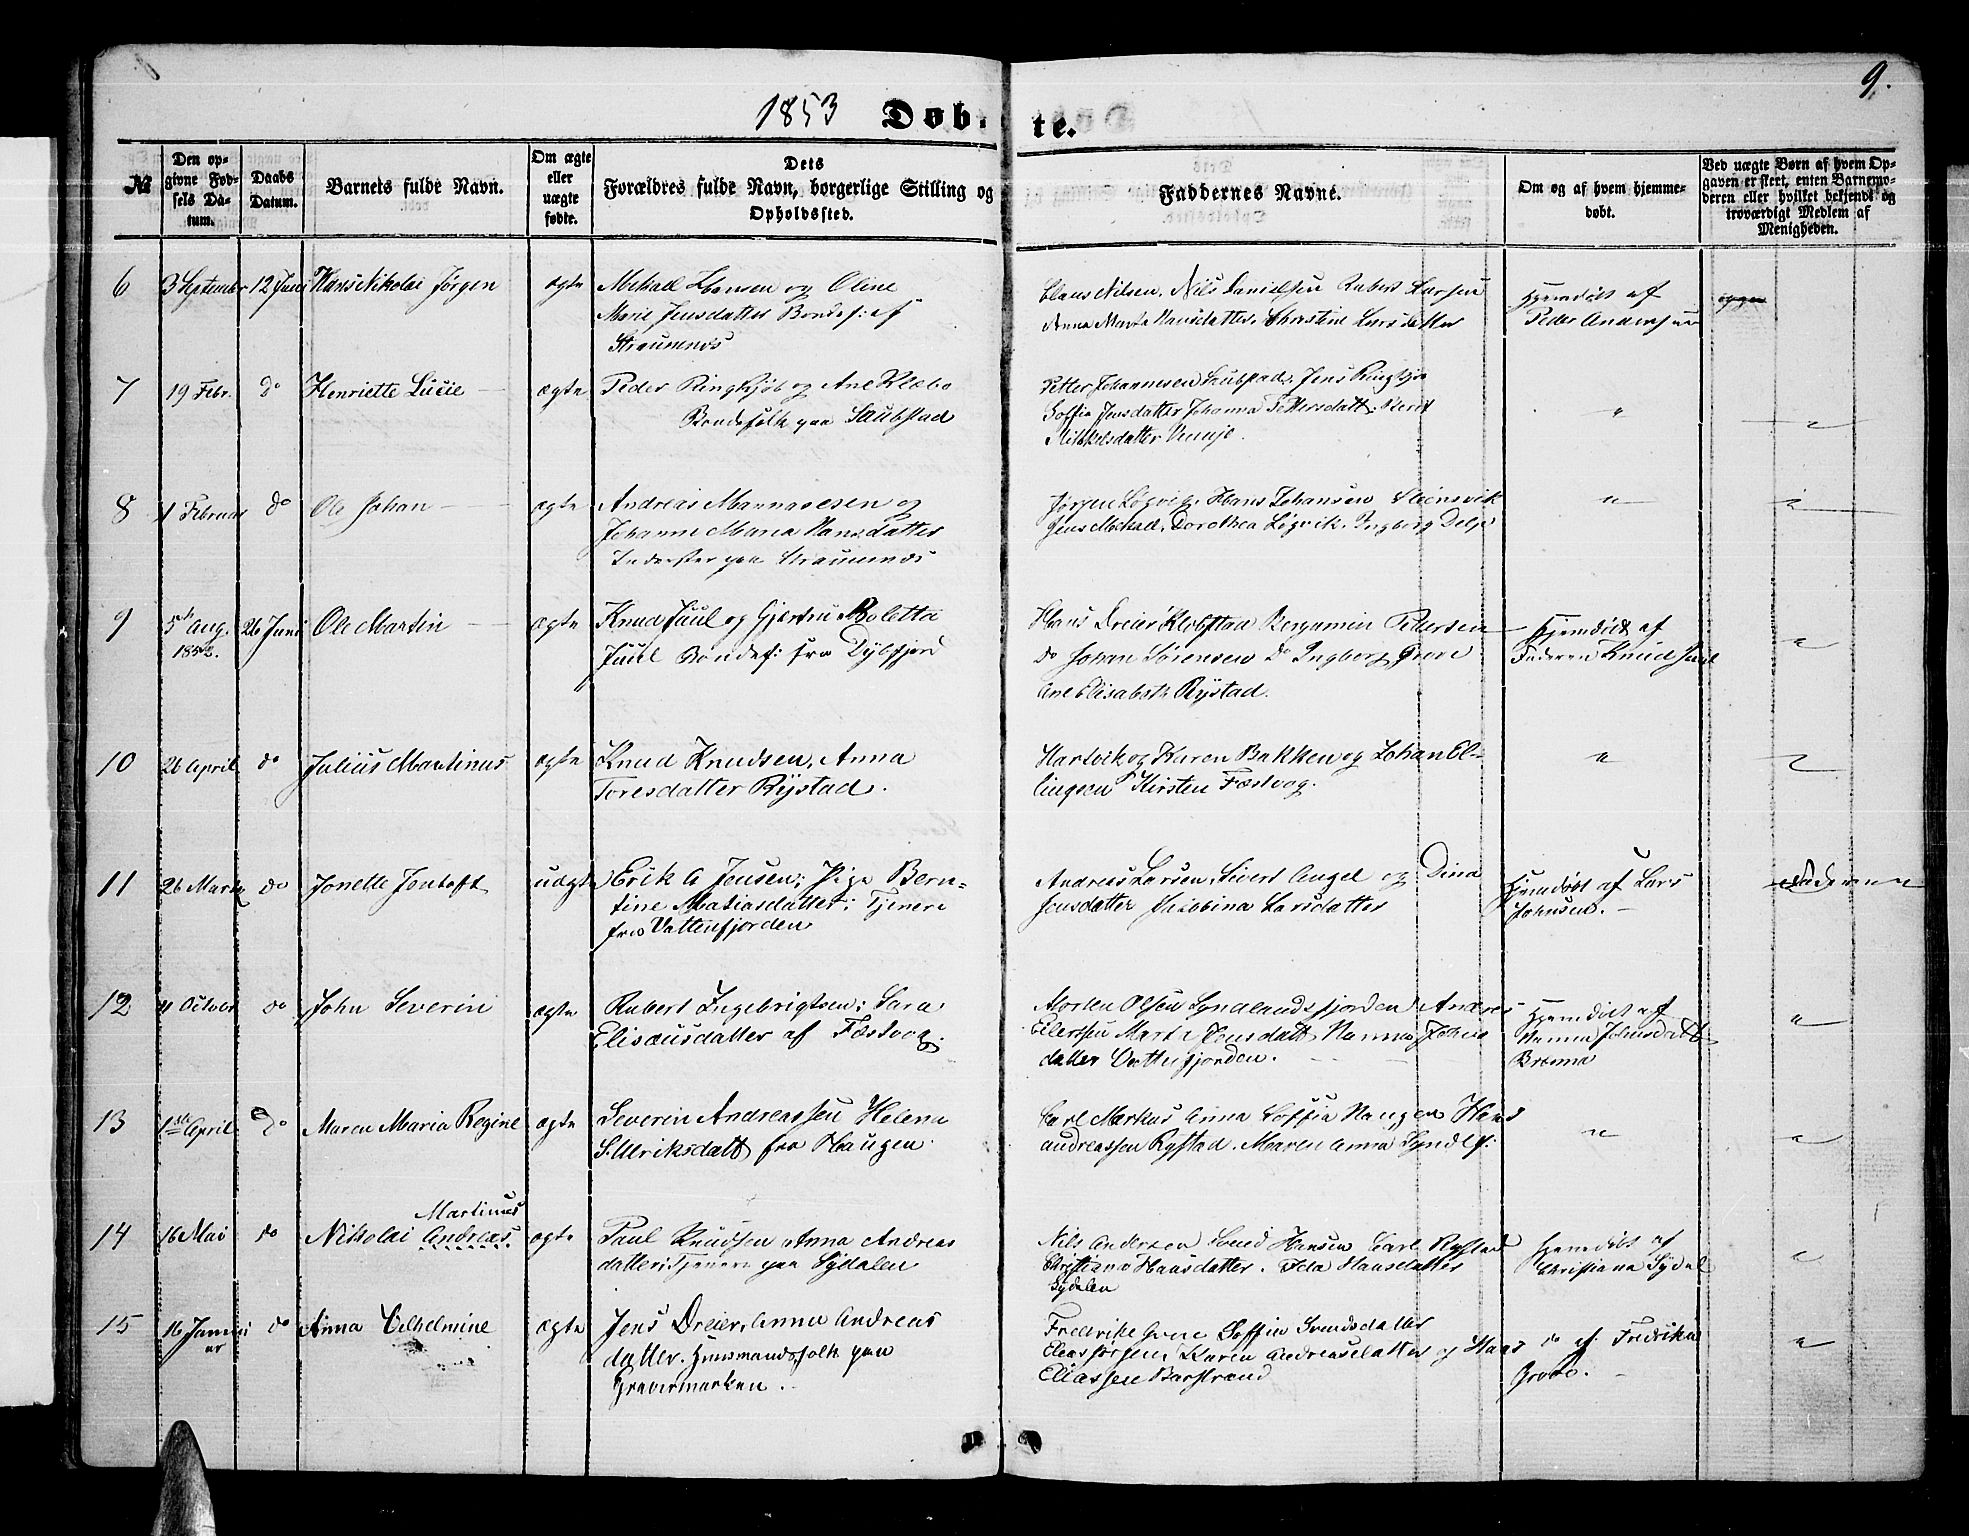 9.
1853 Døb- te.
No
Den op-
givne Fød-
sels Da-
tum.
Daabs
Datum.
Barnets fulde Navn.
Om ægte
eller
uægte
fødte.
Dets
Forældres fulde Navn, borgerlige Stilling og
Opholdssted.
Faddernes Navne.
Om og af hvem hjemme-
døbt.
Ved uægte Børn af hvem Op-
gaven er skeet, enten Barnemo-
deren eller hvilket bekjendt og
troværdigt Medlem af
Menigheden.
6 3 September 12 Juni Hans Nikolai Jørgen ægte Mikael Hansen og Oline
Marie Jensdatter Bondef: af
Straumnes
Claus Nilsen, Nils Danielsen Rubert Larsen
Anna Marta Hansdatter, Christine Larsdatter
Hjemdøbt af
Peder Andersen
7 19 Febr. do Henriette Lucie ægte Peder Ringkjøb og Ane Klæbo
Bondefolk paa Saubstad
Petter Johannesen Saubstad, Jens Ringkjø
Soffia Jensdatter Johanna Pettersdatt: Berit
Mikkelsdatter
"
8 1 Februar do Ole Johan ægte Andreas Mannasesen og
Johanne Maria Hansdatter
Inderster paa Straumnes
Jørgen Løgvig, Hans Johansen Steinsvik
Jens Mikael, Dorothea Løgvik, Ingborg Delp
"
9 5te Aug. 26 Juni Ole Martin ægte Knud Juul og Gjertru Boletta
1852.
Juul Bondef: fra Dybfjord
Hans Dreier Klobstad Benjamin Pedersen
do Johan Sørensen do Ingborg Greve
Ane Elisabeth Rystad.
Hjemdøbt af
Faderen Knud Juul
"
10 26 April do Julius Martinus ægte Knud Knudsen, Anna
Toresdatter Rystad.
Hartvik og Karen Bakken og Johan El-
lingsen Kirsten Fæstvog.
"
11 26 Marts do Jonette Jentoft uægte Erik A Jensen; Pige Bern-
tine Matiasdatter; Tjenere
fra Vattenfjorden
Andreas Larsen, Sivert Angel og Dina
Jensdatter Jakobina Larsdatter
Hjemdøbt af Lars
Johnsen.
12 4 October do John Severin ægte Rubert Ingebrigtsen; Sara
Elisæusdatter af Fæstvog.
Morten Olsen Syndlandsfjorden Andreas
Eilertsen Marte Jensdatt Hanna Johns
datter Vattenfjorden.
Hjemdøbt af
Hanna Johnsdatt
Brenna
"
13 1ste April do Maren Maria Regine ægte Severin Andreassen Helena
S. Ulriksdatt fra Haugen
Carl Markus Anna Soffia Haugen Hans
Andreassen Rystad. Maren Anna Syndlf:
"
Martinus
14 16 Mai do Nikkolai Andreas ægte Paul Knudsen Anna Andreas
datter; Tjenere paa Sydalen
Nils Andersen Svend Hansen Carl Rystad
Christiana Hansdatter. Ida Hansdatter
Sydalen
Hjemdøbt af
Christiana Sydal
15 16 Janu do Anna Vilhelmine ægte Jens Dreier, Anna Andreas
ar
datter. Huusmandsfolk paa
Gravermarken.
Frederikke Grove Soffia Svendsdatter
Elias Jørgensen, Karen Andreasdatter og Hans
Eliassen Barstrand
do af Fredrikke
Grove.
"